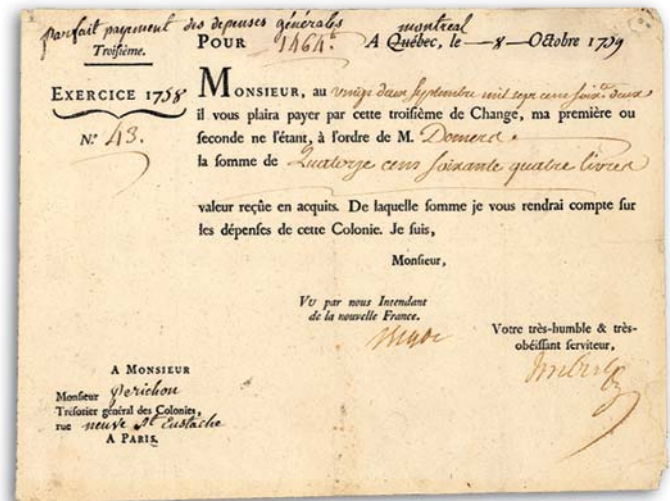 parfait payement des depenses générales
Troisiéme. POUR 1464.ᵗ A Québec, le — 8 — Octobre 1759
montreal
EXERCICE 1758
N.º 43.
MONSIEUR, au vingt deux Septembre mil sept cens soix.te deux
il vous plaira payer par cette troisiéme de Change, ma première ou
seconde ne l'étant, à l'ordre de M. Domerd
la somme de Quatorze cens soixante quatre livres
valeur reçûe en acquits. De laquelle somme je vous rendrai compte sur
les dépenses de cette Colonie. Je suis,
Monsieur,
VU par nous Intendant
de la nouvelle France.
Votre très-humble & très-
obéissant serviteur,
Imbert
A MONSIEUR
Monsieur Perichon
Trésorier général des Colonies,
rue neuve St Eustache
A PARIS.